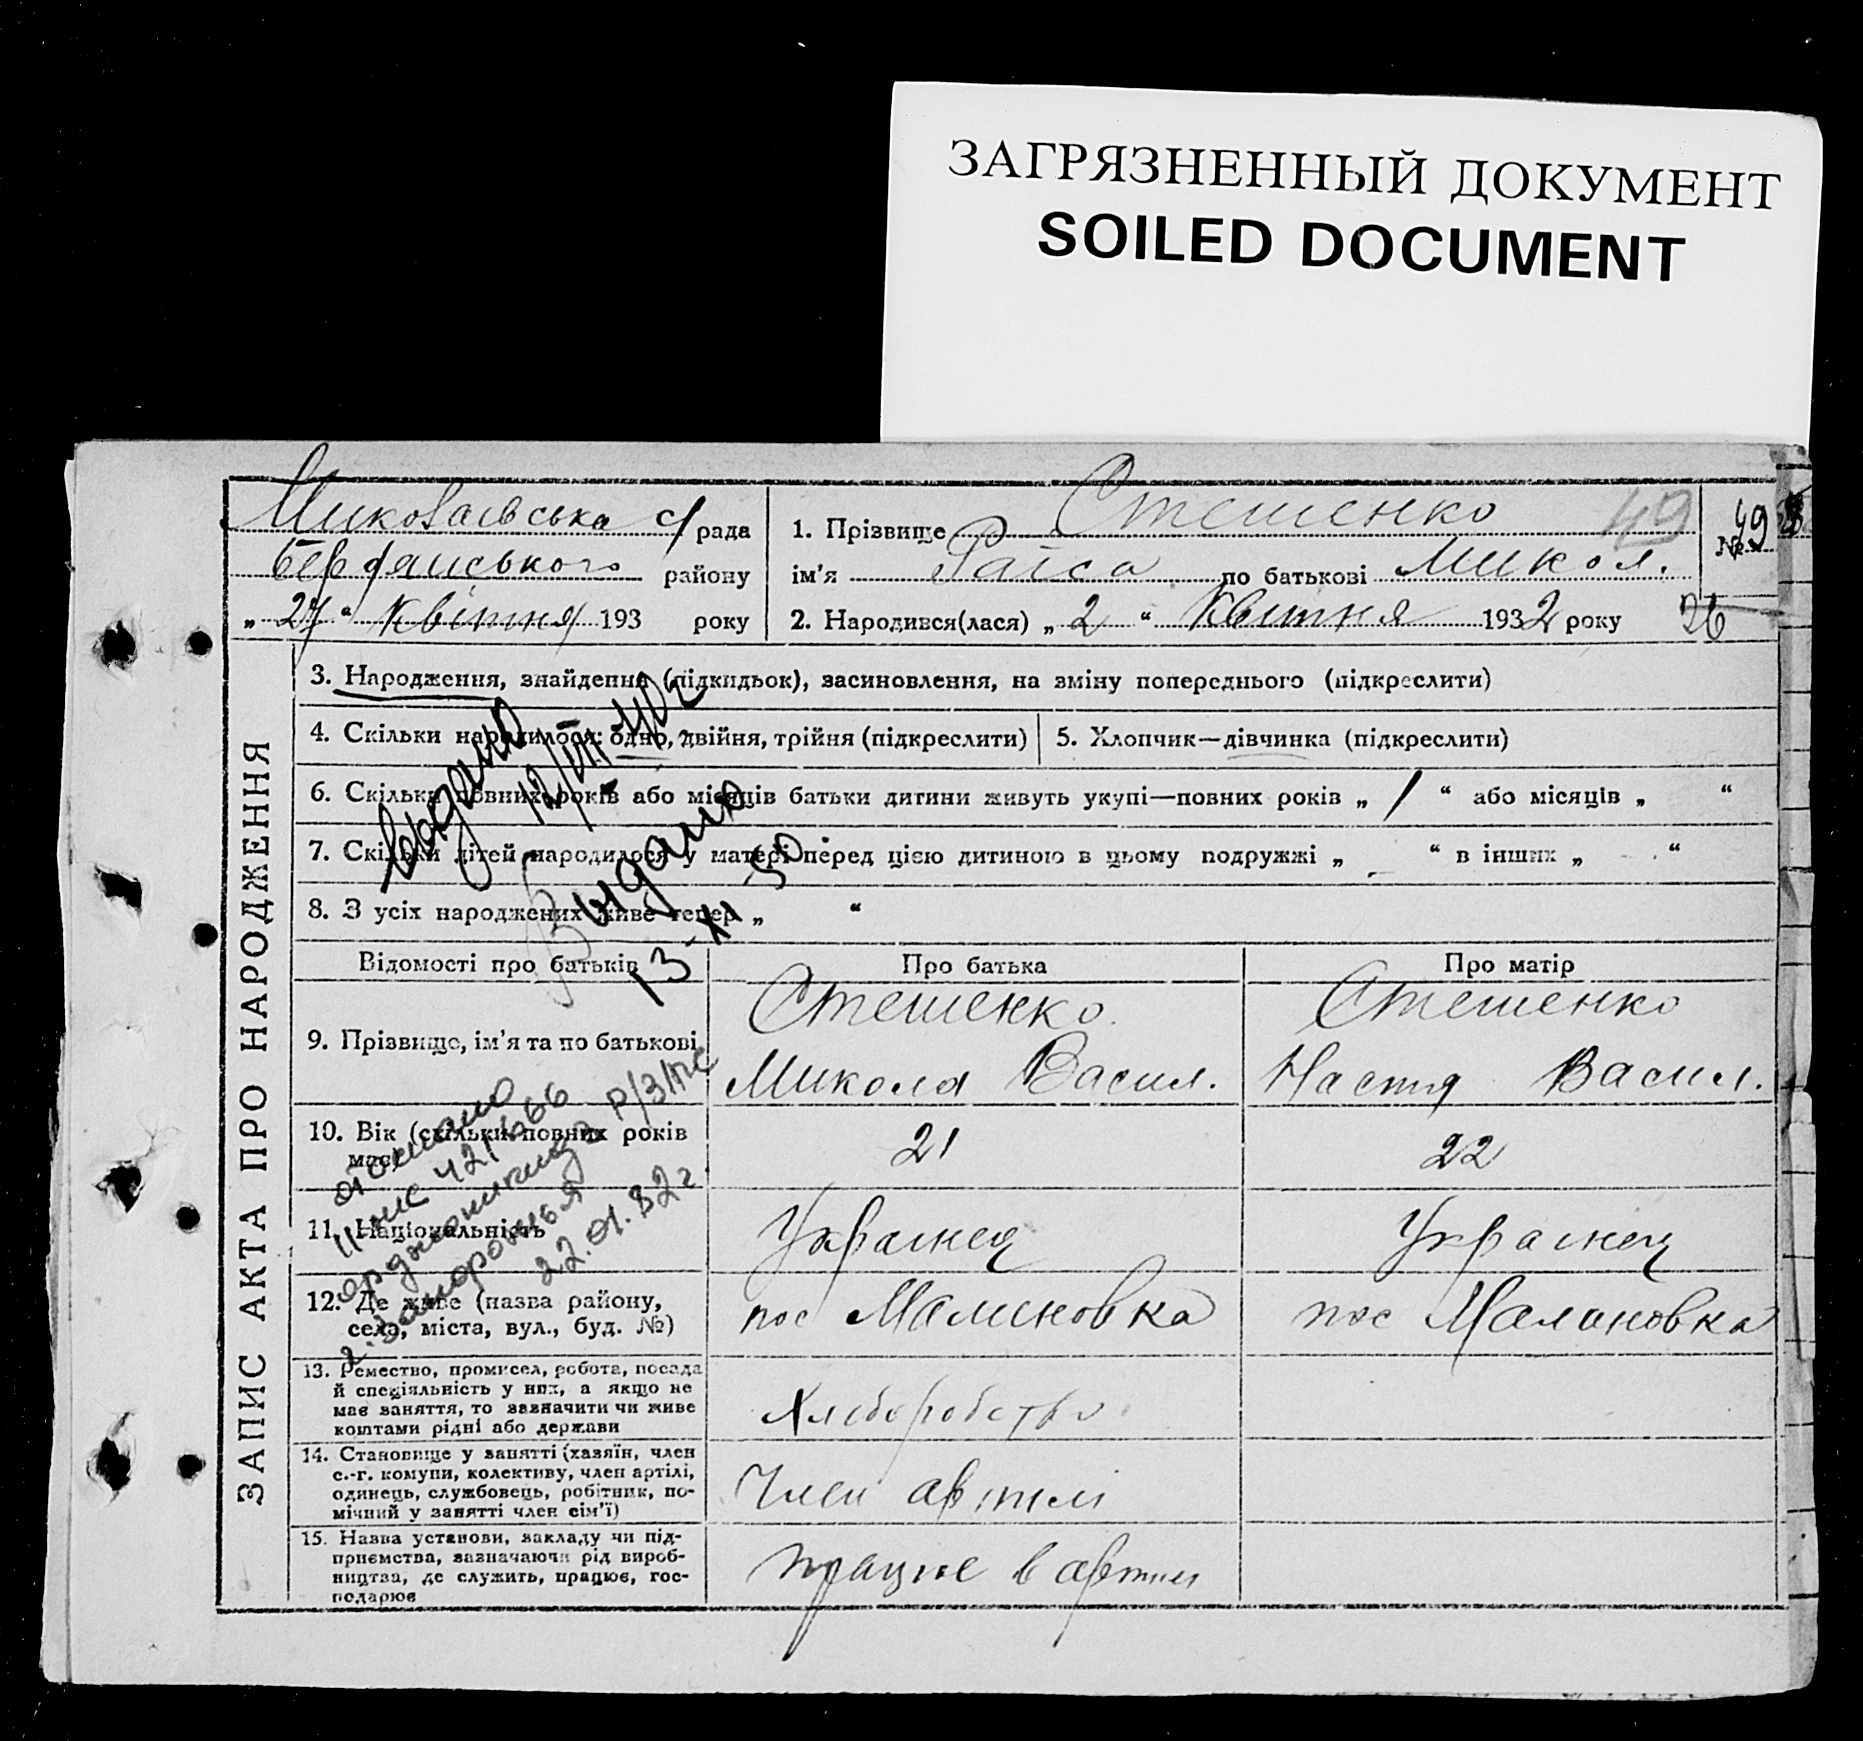 ЗАГРЯЗНЕННЫЙ ДОКУМЕНТ
SOILED DOCUMENT
Миколаівська с/рада
Бердянського району
„27“ Квітня 193 року
1. Прізвище Стешенко 49
№ 49
ім'я Раїса по батькові Микол.
2. Народився(лася) „2“ Квітня 1932 року 26
ЗАПИС АКТА ПРО НАРОДЖЕННЯ
3. Народження, знайдення (підкидьок), засиновлення, на зміну попереднього (підкреслити)
4. Скільки народилося: одно, двійня, трійня (підкреслити)
5. Хлопчик—дівчинка (підкреслити)
6. Скільки повних років або місяців батьки дитини живуть укупі—повних років „1“ або місяців „ “
7. Скільки дітей народилося у матері перед цією дитиною в цьому подружжі „ “ в інших „ “
8. З усіх народжених живе тепер „ “
Выдано
Выдано
13-XI-50
Відомості про батьків
Про батька
Про матір
9. Прізвище, ім'я та по батькові
Стешенко
Микола Васил.
Стешенко
Настя Васил.
10. Вік (скільки повних років має)
21
22
11. Національність
Украінец
Украінец
12. Де живе (назва району,
село, міста, вул., буд. №)
пос Малиновка
пос Малиновка
22.01.82г.
г. Запорожья
13. Ремество, промисел, робота, посада
й спеціяльність у них, а якщо не
має заняття, то зазначити чи живе
коштами рідні або держави
Хліборобство
14. Становище у занятті (хазяїн, член
с.-г. комуни, колективу, член артілі,
одинець, службовець, робітник, по-
мічний у занятті член сім'ї)
Член артілі
15. Назва установи, закладу чи під-
приємства, зазначаючи рід вироб-
ництва, де служить, працює, гос-
подарює
працює в артилі